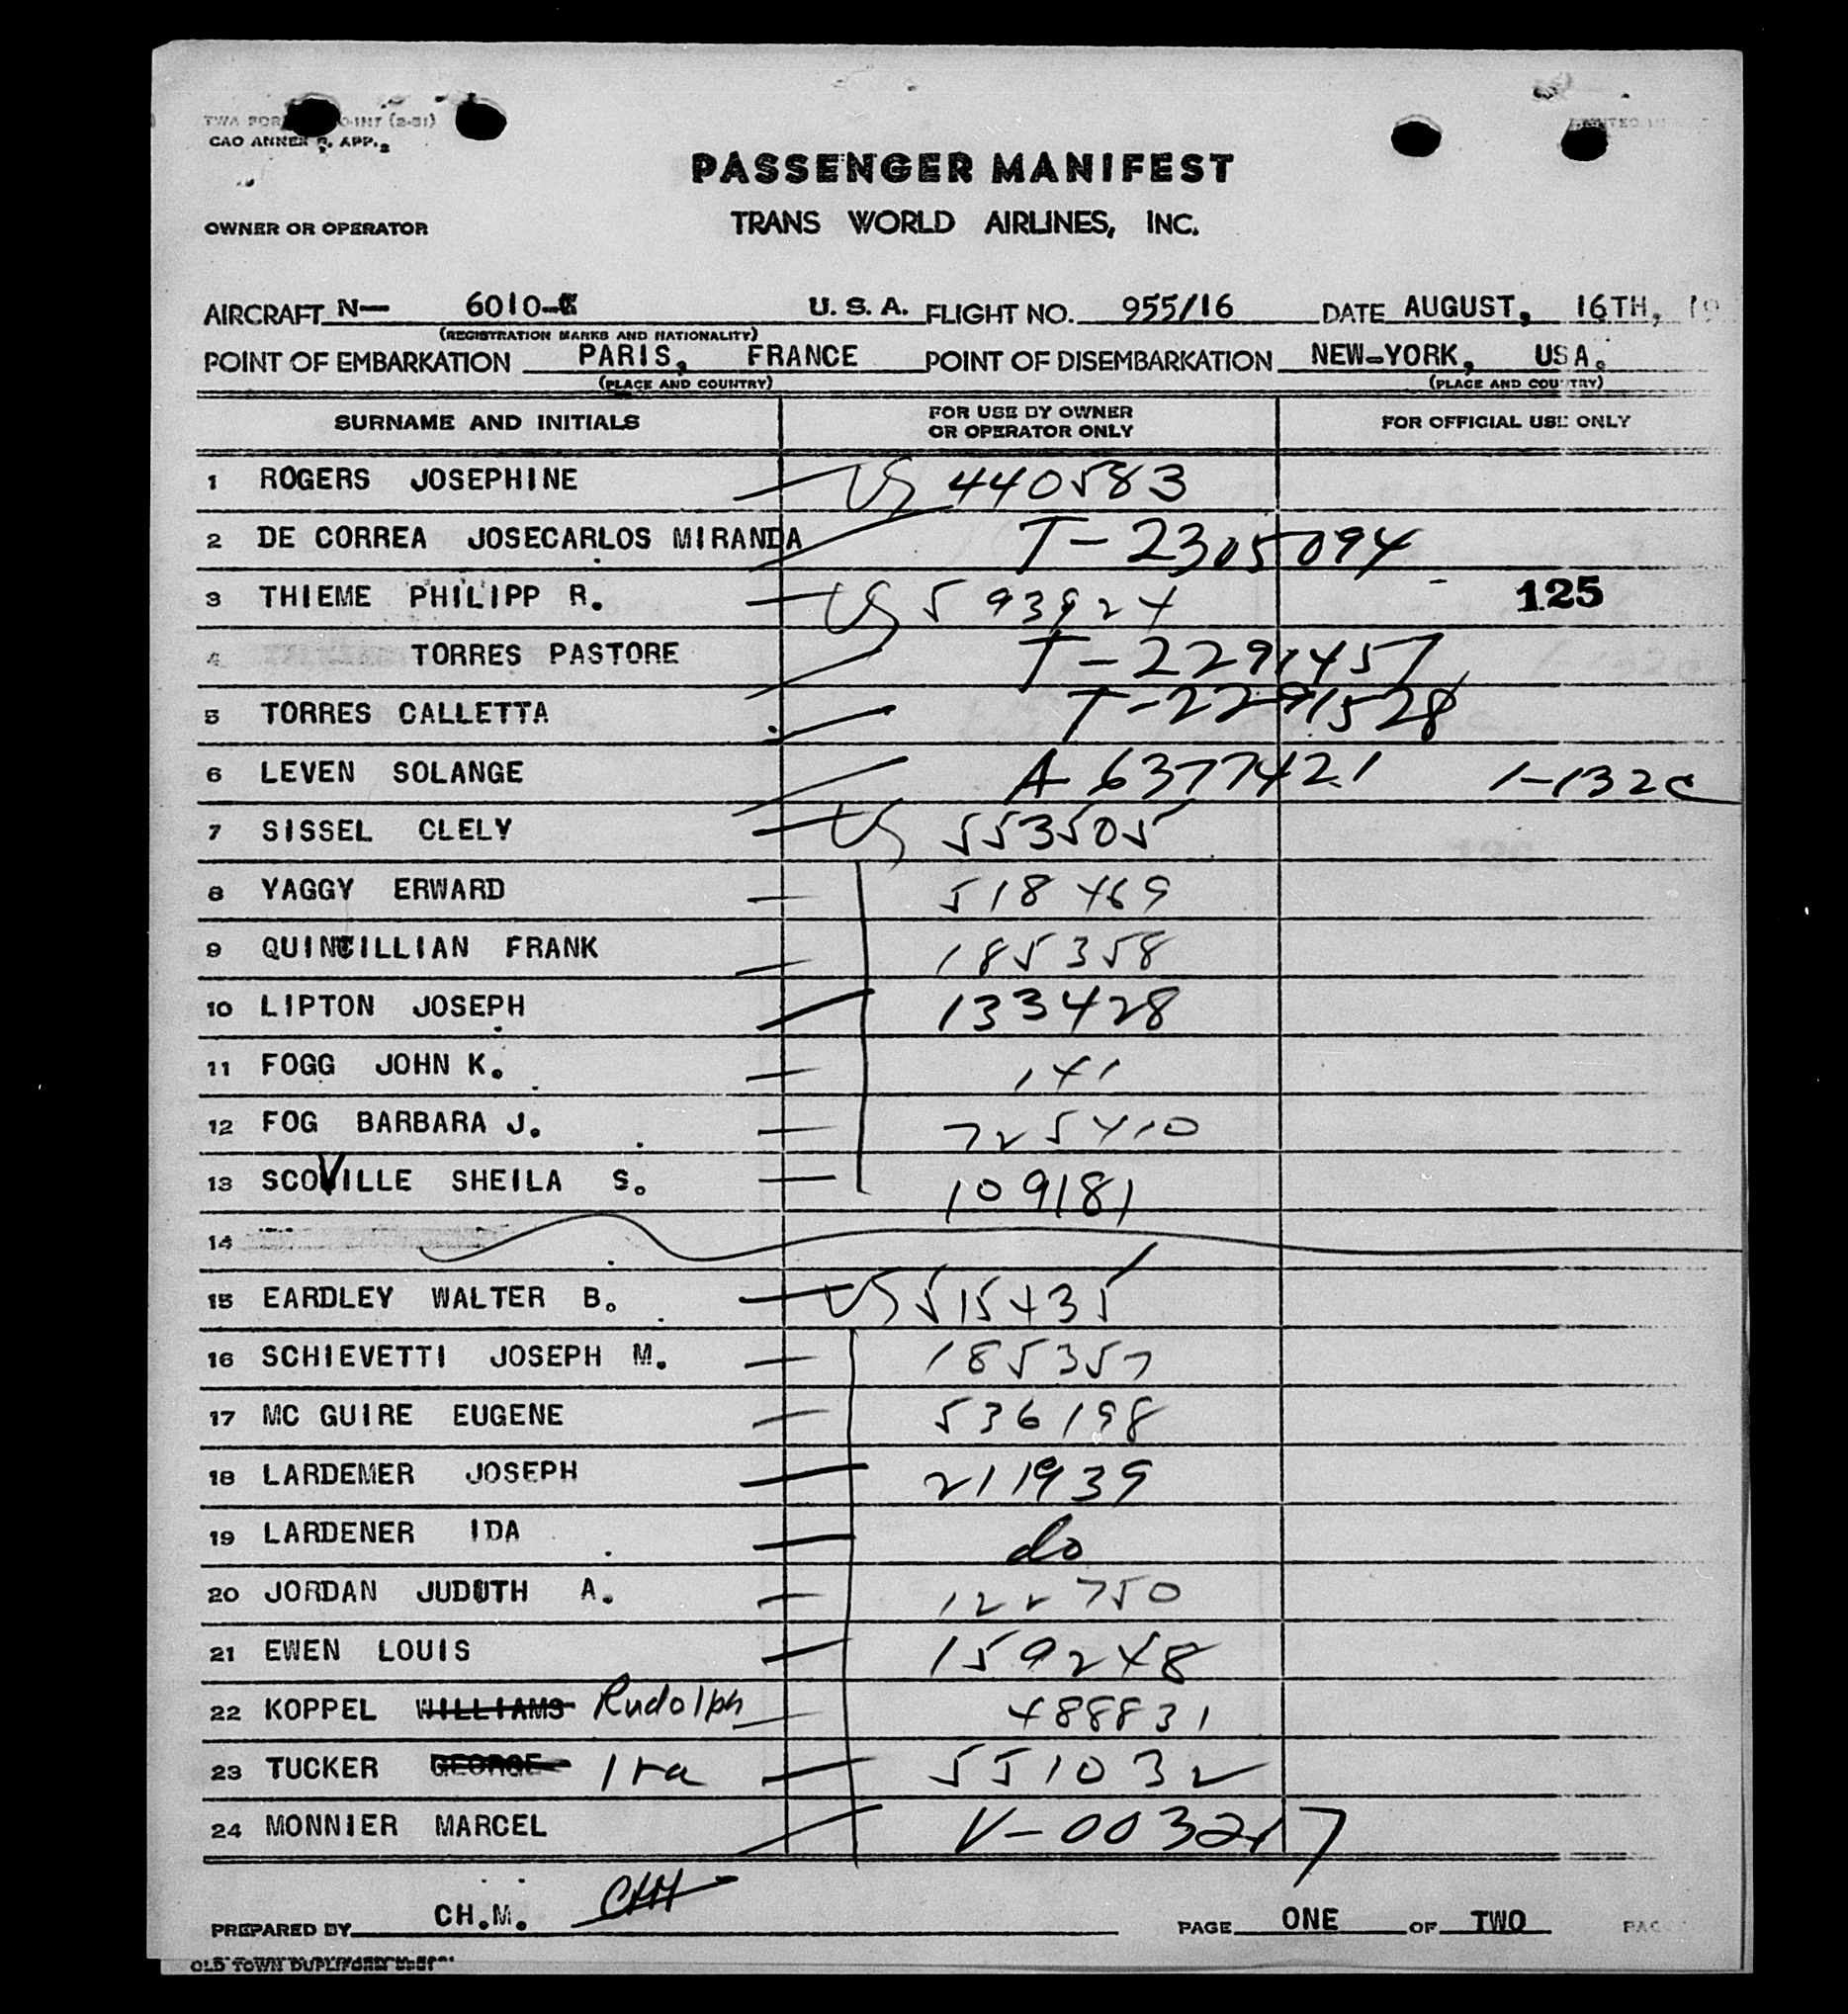 CAO ANNEX 9, APP. 2
PASSENGER MANIFEST
OWNER OR OPERATOR
TRANS WORLD AIRLINES, INC.
AIRCRAFT N— 6010-C U. S. A. FLIGHT NO. 955/16 DATE AUGUST, 16TH, 19
(REGISTRATION MARKS AND NATIONALITY)
POINT OF EMBARKATION PARIS, FRANCE POINT OF DISEMBARKATION NEW-YORK, USA.
(PLACE AND COUNTRY) (PLACE AND COUNTRY)
SURNAME AND INITIALS FOR USE BY OWNER OR OPERATOR ONLY FOR OFFICIAL USE ONLY
1 ROGERS JOSEPHINE US 440583
2 DE CORREA JOSECARLOS MIRANDA T-2305094
3 THIEME PHILIPP R. US 593924 125
4 TORRES PASTORE T-2291457
5 TORRES CALLETTA T-2291528
6 LEVEN SOLANGE A 6377421 1-132c
7 SISSEL CLELY US 553505
8 YAGGY ERWARD 518469
9 QUINCILLIAN FRANK 185358
10 LIPTON JOSEPH 133428
11 FOGG JOHN K. 141
12 FOG BARBARA J. 725410
13 SCOVILLE SHEILA S. 109181
14
15 EARDLEY WALTER B. US 515435
16 SCHIEVETTI JOSEPH M. 185357
17 MC GUIRE EUGENE 536198
18 LARDEMER JOSEPH 211939
19 LARDENER IDA do
20 JORDAN JUDUTH A. 122750
21 EWEN LOUIS 159248
22 KOPPEL WILLIAMS Rudolph 488831
23 TUCKER GEORGE Ira 551032
24 MONNIER MARCEL V-003217
PREPARED BY CH.M. CHM PAGE ONE OF TWO PAG